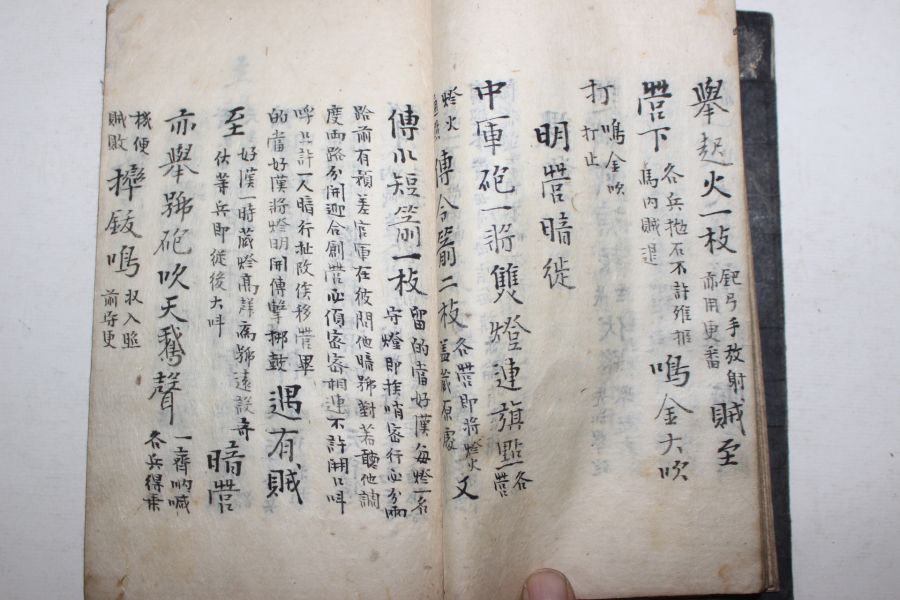 舉起火一枝 鈀弓手放射 亦用更番 賊至
營下 各兵拋石不許 馬內賊退 鳴金大吹
打 鳴金吹 打止
明營暗徙
中軍砲一將雙燈連旗點 各營
燈火 傳令箭二枝 各營即將燈火 盖藏原處 又
傳小短箭一枝 留的當好漢每燈一名 守燈即挨哨密行必分兩
路前有預差官軍在彼問他暗號對著聽他調 度両路分開迎合創營必須密密相連不許開口叫
呼只許一人暗行扯改俟移營畢 的當好漢將燈明開傳擊梆鼓 遇有賊
至 好漢一時蔵燈爲號遠設奇 伏等兵即從後大叫 暗營
亦舉號砲吹天鵝聲 一齊吶喊 各兵得乘
機便 賊敗 摔鈸鳴 収入照 前守更